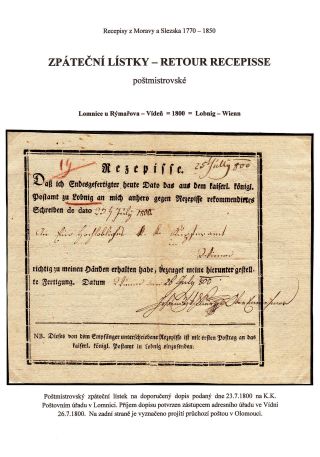 Recepisy z Moravy a Slezska 1770 – 1850
ZPÁTEČNÍ LÍSTKY – RETOUR RECEPISSE
poštmistrovské
Lomnice u Rýmařova – Vídeň = 1800 = Lobnig – Wienn
25 July 800
Rezepisse.
Daß ich Endesgefertigter heute Dato das aus dem kaiserl. königl.
Postamt zu Lobnig an mich anhero gegen Rezepisse rekommendirtes
Schreiben de dato 23 July 1800.
An Eine Hochlöbliches K. K.
Wienn
richtig zu meinen Händen erhalten habe, bezeuget meine hierunter gestell-
te Fertigung. Datum Wienn den 26 July 800
NB. Dieses von dem Empfänger unterschriebene Rezepisse ist mit ersten Posttag an das
kaiserl. königl. Postamt in Lobnig einzusenden.
Poštmistrovský zpáteční lístek na doporučený dopis podaný dne 23.7.1800 na K.K.
Poštovním úřadu v Lomnici. Příjem dopisu potvrzen zástupcem adresního úřadu ve Vídni
26.7.1800. Na zadní straně je vyznačeno projití průchozí poštou v Olomouci.